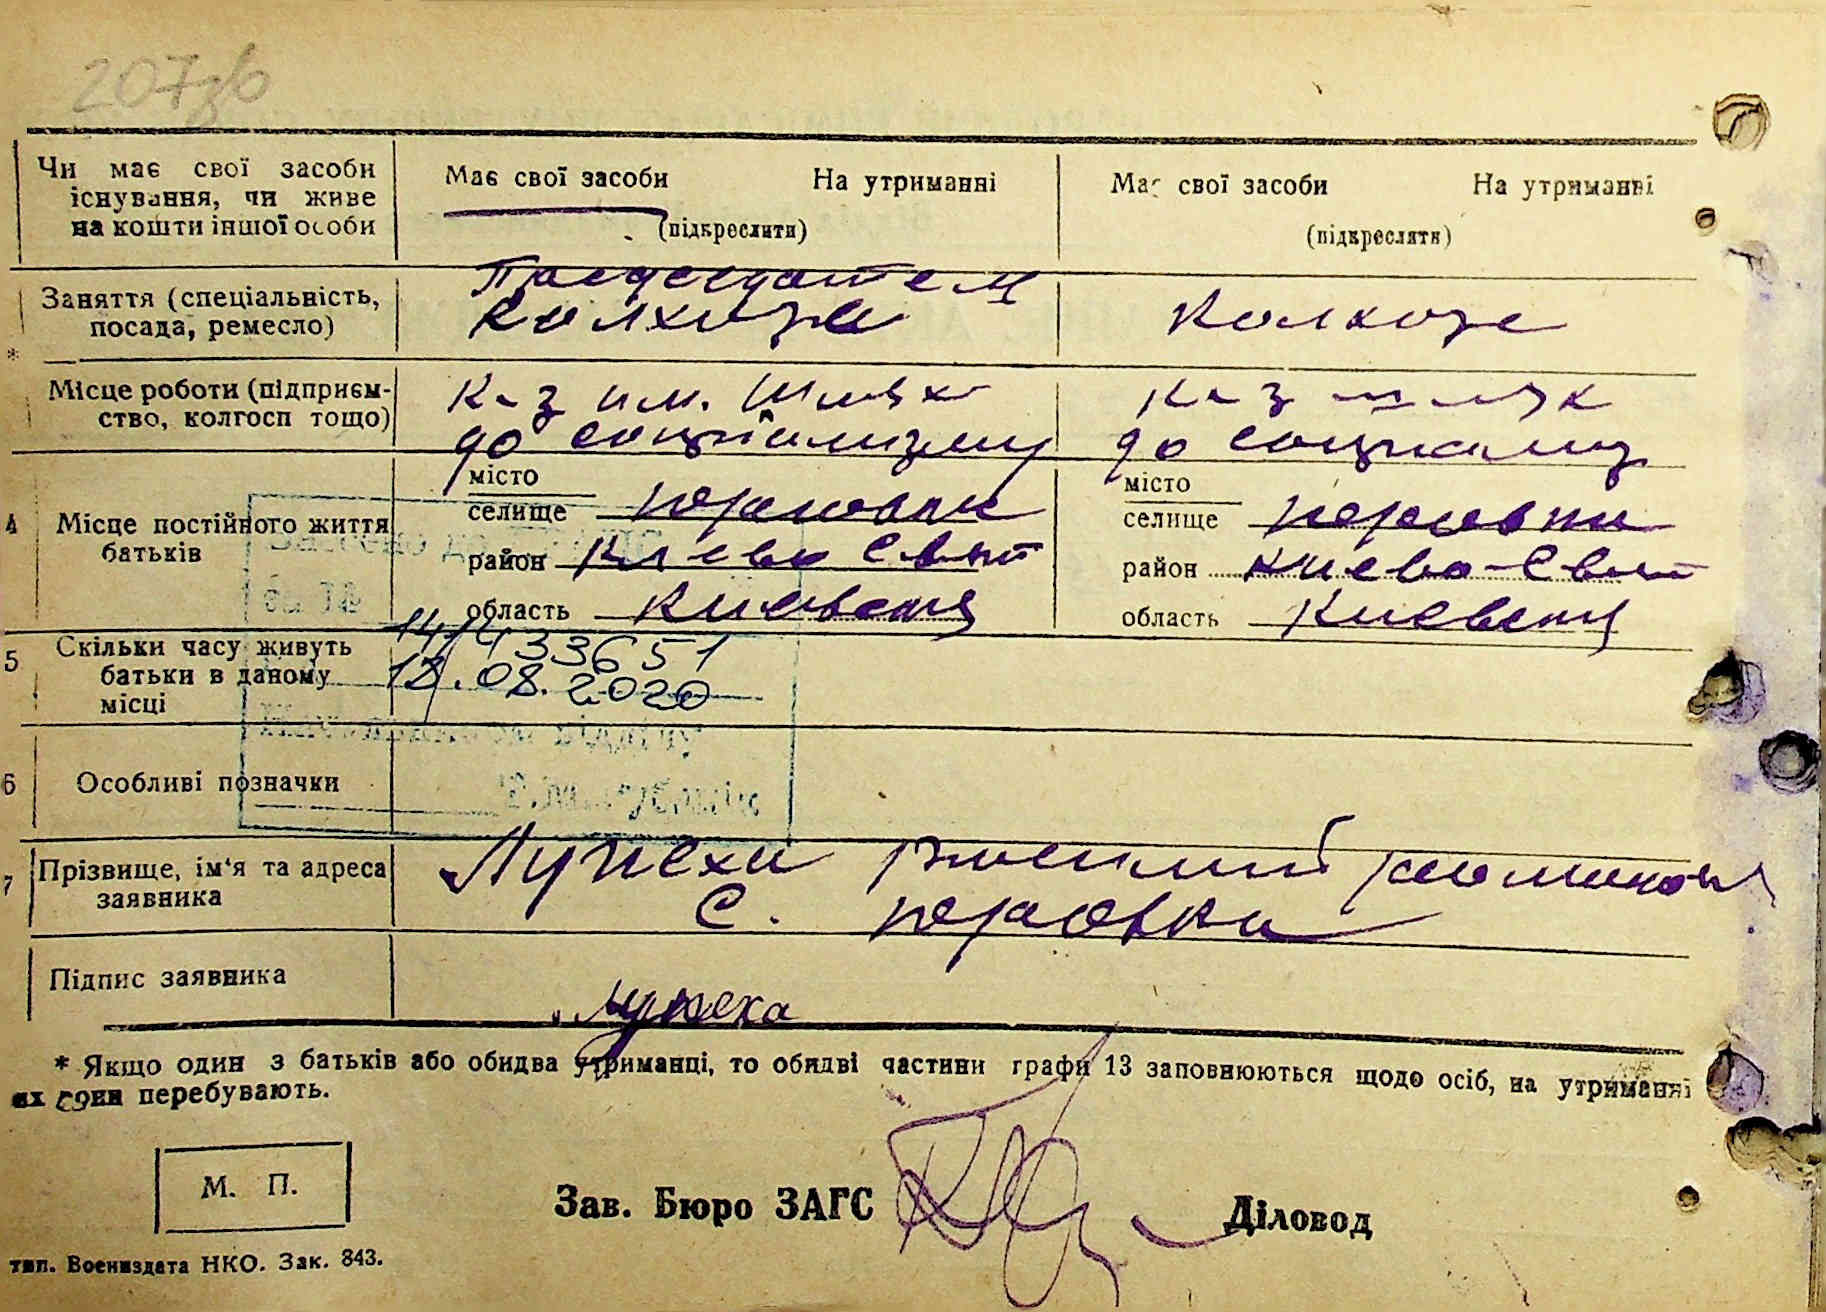 207зв
Чи має свої засоби
існування, чи живе
на кошти іншої особи
Має свої засоби На утриманні
(підкреслити)
Має свої засоби На утриманні
(підкреслити)
Заняття (спеціальність,
посада, ремесло)
Председатель
Колхоза
Колхозе
* Місце роботи (підприєм-
ство, колгосп тощо)
К-з им. Шлях
до социализму
К-з шлях
до социализ
4 Місце постійного життя
батьків
місто
селище
район Киево Свят
область Киевская
місто
селище
район Киево-Свят
область Киевская
5 Скільки часу живуть
батьки в даному
місці
14/433651
18.08.2020
6 Особливі позначки
7 Прізвище, ім'я та адреса
заявника
Лупеха
с.
Підпис заявника
Лупеха
* Якщо один з батьків або обидва утриманці, то обидві частини графи 13 заповнюються щодо осіб, на утриманні
их вони перебувають.
М. П.
Зав. Бюро ЗАГС Діловод
тип. Воениздата НКО. Зак. 843.